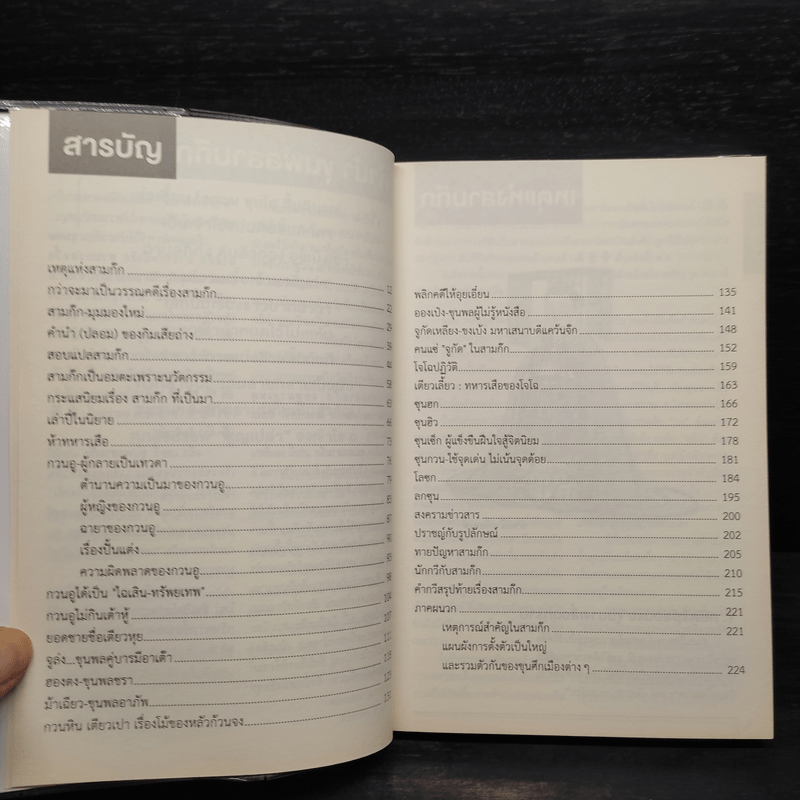 สารบัญ
เหตุแห่งสามก๊ก
กว่าจะมาเป็นวรรณคดีเรื่องสามก๊ก
สามก๊ก-มุมมองใหม่
คำนำ (ปลอม) ของกิมเสียถ่าง
สอบแปลสามก๊ก
สามก๊กเป็นอมตะเพราะนวัตกรรม
กระแสนิยมเรื่อง สามก๊ก ที่เป็นมา
เล่าปี่ในนิยาย
ห้าทหารเสือ
กวนอู-ผู้กลายเป็นเทวดา
ตำนานความเป็นมาของกวนอู
ผู้หญิงของกวนอู
ฉายาของกวนอู
เรื่องปั้นแต่ง
ความผิดพลาดของกวนอู
กวนอูได้เป็น "ไฉเสิน-ทรัพยเทพ" 104
กวนอูไม่กินเต้าหู้ 107
ยอดชายชื่อเตียวหุย
จูล่ง...ขุนพลคู่บารมีอาเต๊า
ฮองตง-ขุนพลชรา
ม้าเฉียว-ขุนพลอาภัพ
กวนหิน เตียวเปา เรื่องโม้ของหลัวก้วนจง
พลิกคดีให้อุยเอี๋ยน 135
อองเป๋ง-ขุนพลผู้ไม่รู้หนังสือ 141
จูกัดเหลียง-ขงเบ้ง มหาเสนาบดีแคว้นจ๊ก 148
คนแซ่ "จูกัด" ในสามก๊ก 152
โจโฉปฏิวัติ 159
เตียวเลี้ยว : ทหารเสือของโจโฉ 163
ซุนฮก 166
ซุนฮิว 172
ซุนเซ็ก ผู้แข็งขืนฝืนใจสู้จิตนิยม 178
ซุนกวน-ใช้จุดเด่น ไม่เน้นจุดด้อย 181
โลซก 184
ลกซุน 195
สงครามข่าวสาร 200
ปราชญ์กับรูปลักษณ์ 202
ทายปัญหาสามก๊ก 205
นักกวีกับสามก๊ก 210
คำกวีสรุปท้ายเรื่องสามก๊ก 215
ภาคผนวก 221
เหตุการณ์สำคัญในสามก๊ก 221
แผนผังการตั้งตัวเป็นใหญ่
และรวมตัวกันของขุนศึกเมืองต่าง ๆ 224